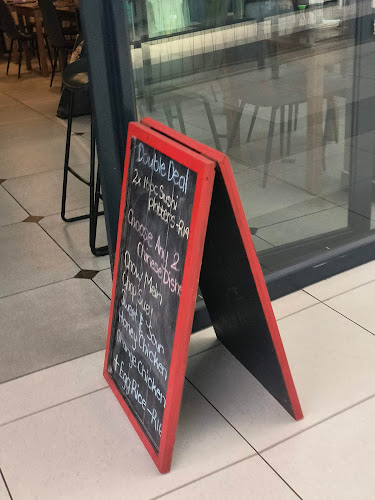 Double Deal
2x 16pc Sushi
Platters - R1A
Choose Any 2
Chinese Dish
Chow Mein
Chop Suey
Sweet & Sour
Honey Chicken
Orange Chicken
+ Egg Rice - R1A